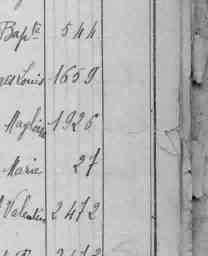 Bapte 544
Louis 1659
Magloire 1926
Marie 27
Valentin 2472